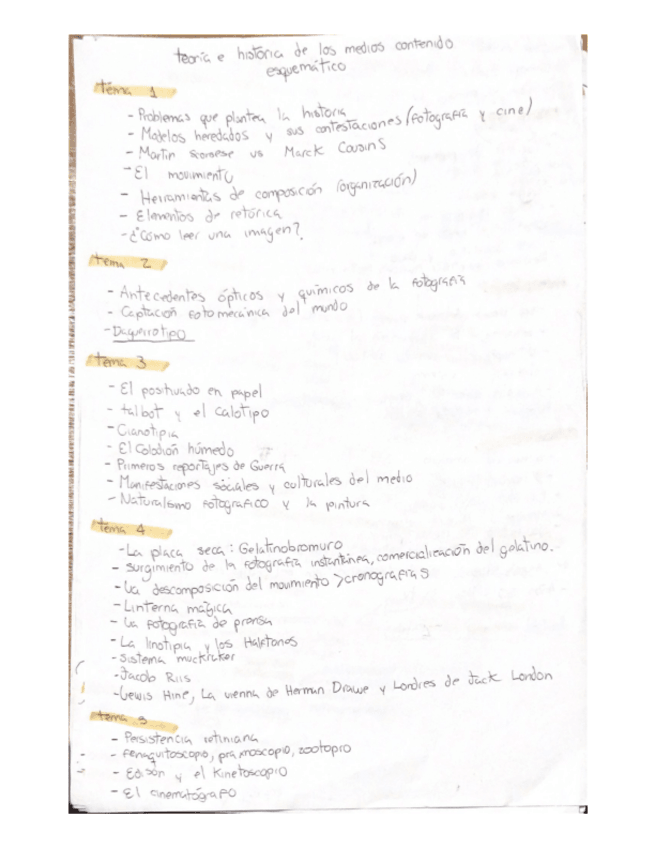 teoría e historia de los medios contenido
esquemático
tema 1
- Problemas que plantea la historia
- Modelos heredados y sus contestaciones (fotografía y cine)
- Martin Scorsese vs Marck Cousins
- El movimiento
- Herramientas de composición (organización)
- Elementos de retórica
- ¿Cómo leer una imagen?
tema 2
- Antecedentes ópticos y químicos de la fotografía
- Captación fotomecánica del mundo
- Daguerrotipo
tema 3
- El positivado en papel
- talbot y el calotipo
- Cianotipia
- El Colodión húmedo
- Primeros reportajes de Guerra
- Manifestaciones sociales y culturales del medio
- Naturalismo fotografico y la pintura
tema 4
- La placa seca: Gelatinobromuro
- surgimiento de la fotografía instantánea, comercialización del gelatino.
- La descomposición del movimiento > cronografías
- Linterna mágica
- La fotografía de prensa
- La linotipia y los Halftones
- Sistema muckraker
- Jacob Riis
- Lewis Hine, La vienna de Herman Drawe y Londres de Jack London
tema 5
- Persistencia retiniana
- fenaquitoscopio, praxinoscopio, zootopro
- Edison y el Kinetoscopio
- El cinematógrafo